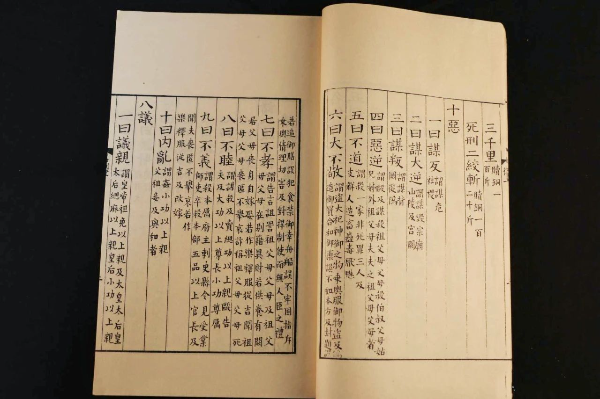 三千里 贖銅一百斤
死刑二絞斬 贖銅一百二十斤
十惡
一曰謀反 謂謀危社稷
二曰謀大逆 謂謀毀宗廟山陵及宮闕
三曰謀叛 謂謀背國從偽
四曰惡逆 謂毆及謀殺祖父母父母殺伯叔父母姑兄姊外祖父母夫夫之祖父母父母者
五曰不道 謂殺一家非死罪三人及支解人造畜蠱毒厭魅
六曰大不敬 謂盜大祀神御之物乘輿服御物盜及偽造御寶合和御藥誤不如本方及封題誤
若造御膳誤犯食禁御幸舟船誤不牢固指斥乘輿情理切害及對捍制使而無人臣之禮
七曰不孝 謂告言詛詈祖父母父母及祖父母父母在別籍異財若供養有闕
居父母喪身自嫁娶若作樂釋服從吉聞祖父母父母喪匿不舉哀詐稱祖父母父母死
八曰不睦 謂謀殺及賣緦麻以上親毆告夫及大功以上尊長小功尊屬
九曰不義 謂殺本屬府主刺史縣令見受業師吏卒殺本部五品以上官長及
聞夫喪匿不舉哀若作樂釋服從吉及改嫁
十曰內亂 謂姦小功以上親父祖妾及與和者
八議
一曰議親 謂皇帝袒免以上親及太皇太后皇太后緦麻以上親皇后小功以上親